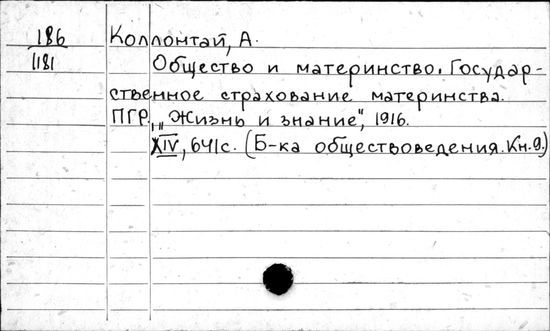 186 Коллонтай, А.
1181
Общество и материнство. Государ-
ственное страхование материнства.
ПГР., „Жизнь и знание", 1916.
XIV, 641с. (Б-ка обществоведения. Кн. 9.)